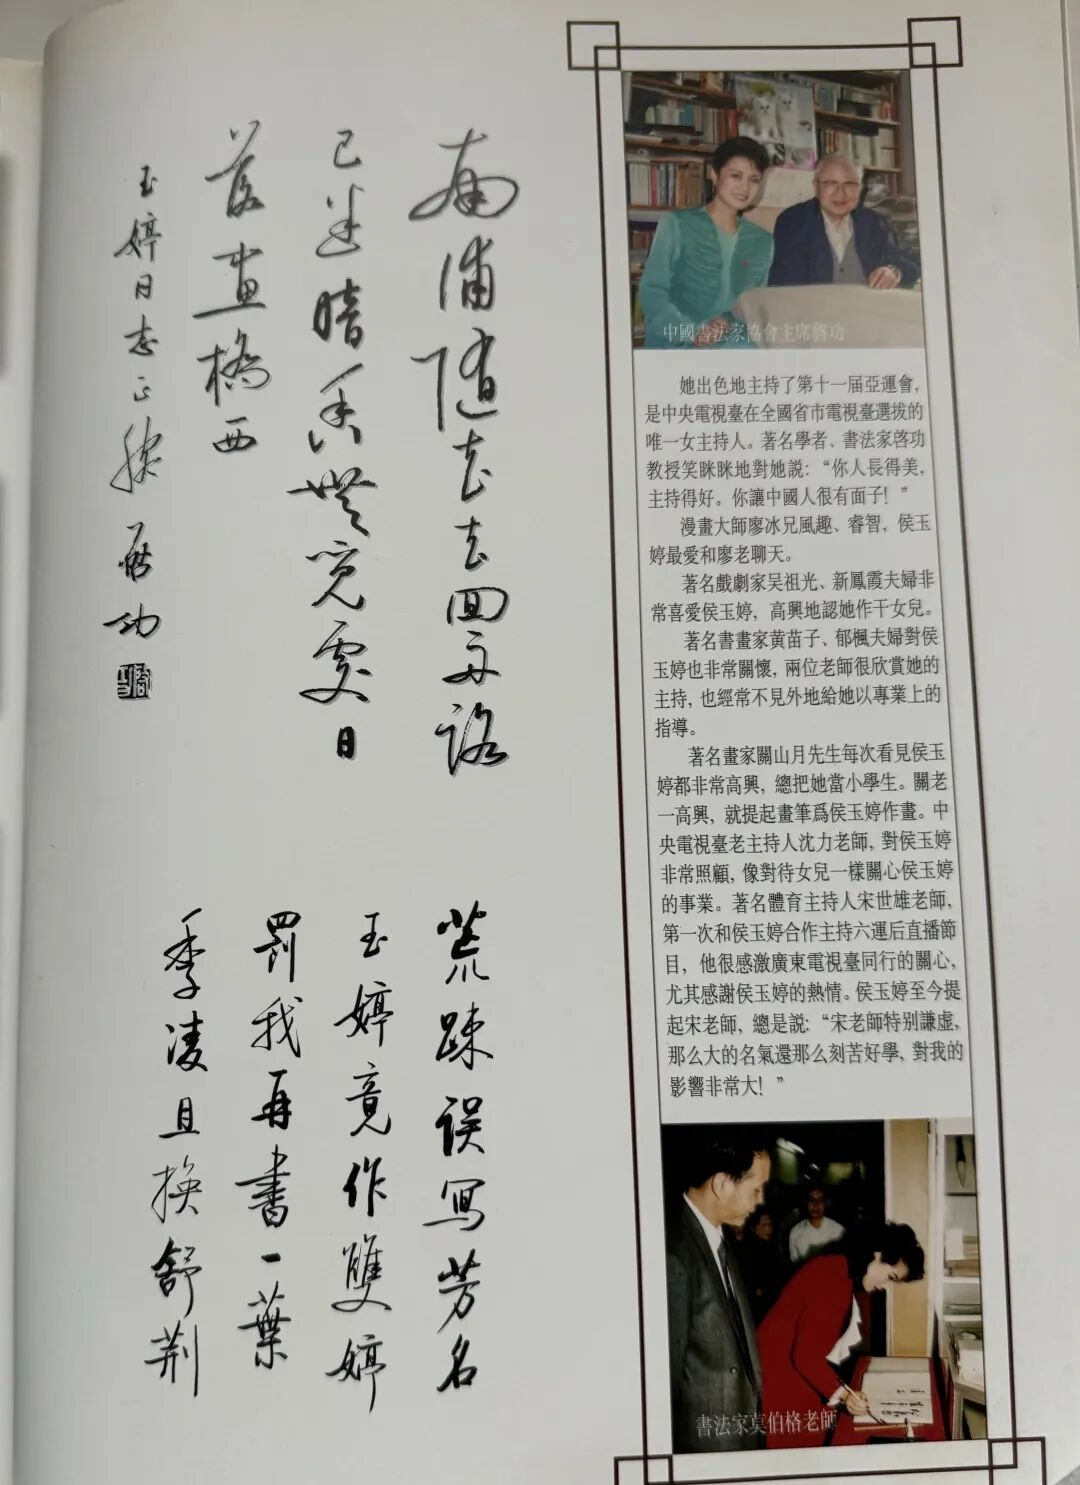 南浦随花去回舟路
已迷暗香無覓處日
落畫橋西
玉婷同志正腕 啓功
荒踈误寫芳名
玉婷竟作雙婷
罰我再書一葉
季凌且换舒荆
中國書法家協會主席啓功
她出色地主持了第十一届亞運會，
是中央電視臺在全國省市電視臺選拔的
唯一女主持人。著名學者、書法家啓功
教授笑眯眯地對她説：“你人長得美，
主持得好。你讓中國人很有面子！”
漫畫大師廖冰兄風趣、睿智，侯玉
婷最愛和廖老聊天。
著名戲劇家吴祖光、新鳳霞夫婦非
常喜愛侯玉婷，高興地認她作干女兒。
著名書畫家黄苗子、郁楓夫婦對侯
玉婷也非常關懷，兩位老師很欣賞她的
主持，也經常不見外地給她以專業上的
指導。
著名畫家關山月先生每次看見侯玉
婷都非常高興，總把她當小學生。關老
一高興，就提起畫筆爲侯玉婷作畫。中
央電視臺老主持人沈力老師，對侯玉婷
非常照顧，像對待女兒一樣關心侯玉婷
的事業。著名體育主持人宋世雄老師，
第一次和侯玉婷合作主持六運后直播節
目，他很感激廣東電視臺同行的關心，
尤其感謝侯玉婷的熱情。侯玉婷至今提
起宋老師，總是説：“宋老師特别謙虚，
那么大的名氣還那么刻苦好學，對我的
影響非常大！”
書法家莫伯格老師